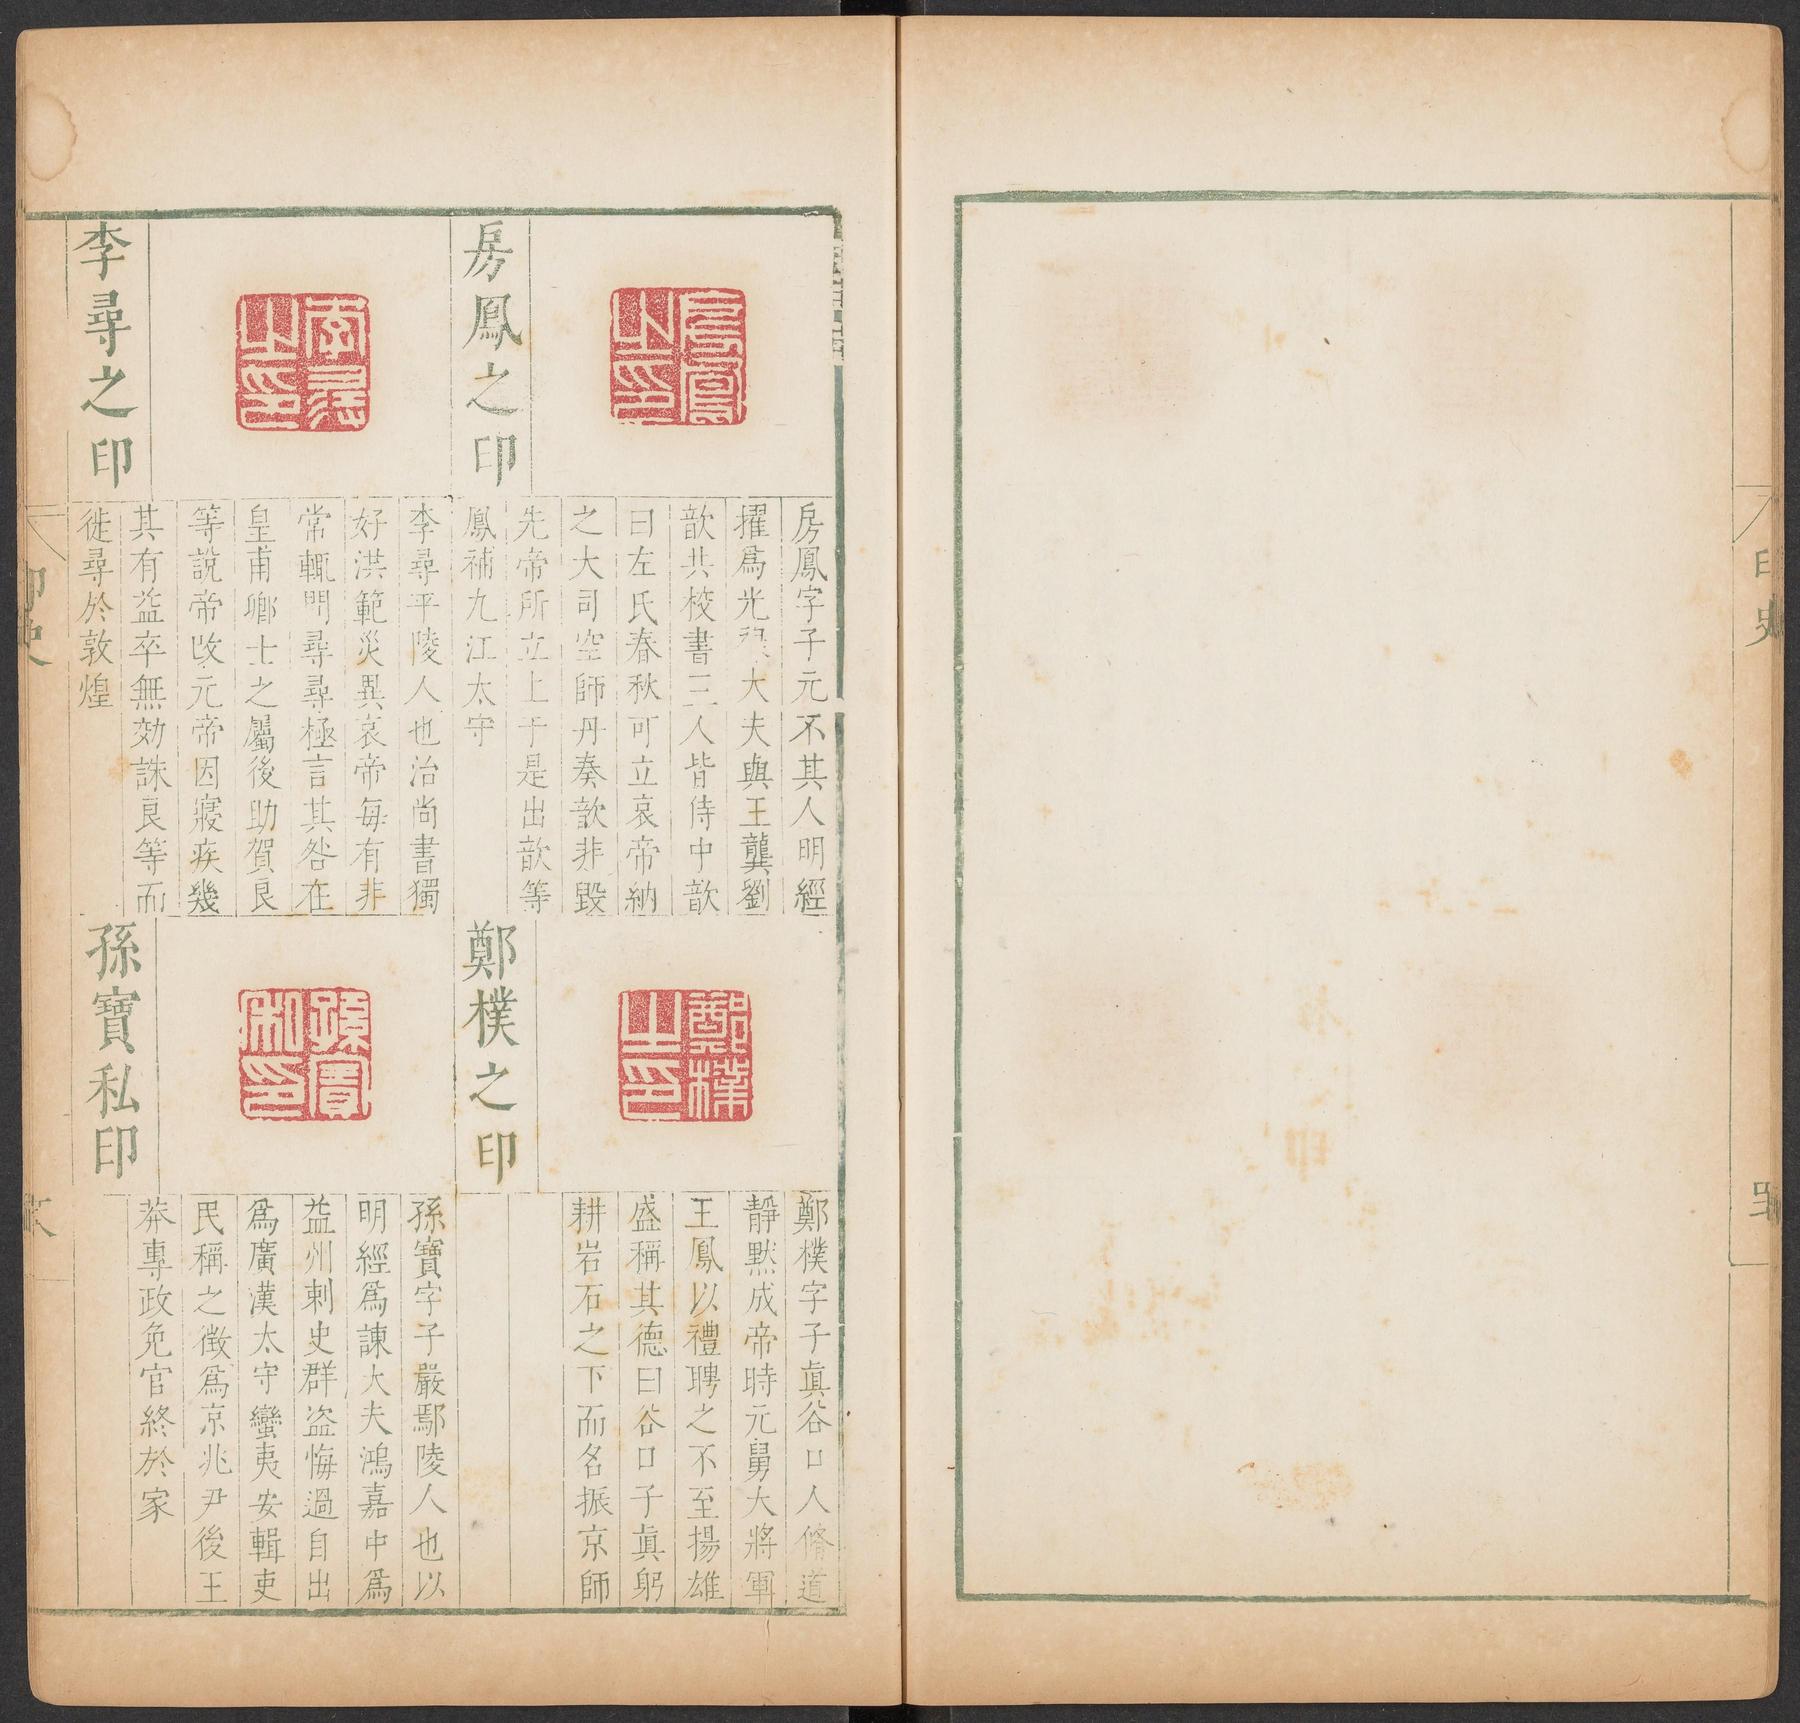 印史
房鳳之印
房鳳字子元不其人明經
擢為光祿大夫與王龔劉
歆共校書三人皆侍中歆
曰左氏春秋可立哀帝納
之大司空師丹奏歆非毀
先帝所立上于是出歆等
鳳補九江太守
李尋之印
李尋平陵人也治尚書獨
好洪範災異哀帝每有非
常輒問尋尋極言其咎在
皇甫卿士之屬後助賀良
等說帝改元帝因寢疾幾
其有益卒無効誅良等而
徙尋於敦煌
鄭樸之印
鄭樸字子真谷口人脩道
靜默成帝時元舅大將軍
王鳳以禮聘之不至揚雄
盛稱其德曰谷口子真躬
耕岩石之下而名振京師
孫寶私印
孫寶字子嚴鄢陵人也以
明經為諫大夫鴻嘉中為
益州刺史群盜悔過自出
為廣漢太守蠻夷安輯吏
民稱之徵為京兆尹後王
莽專政免官終於家
印史